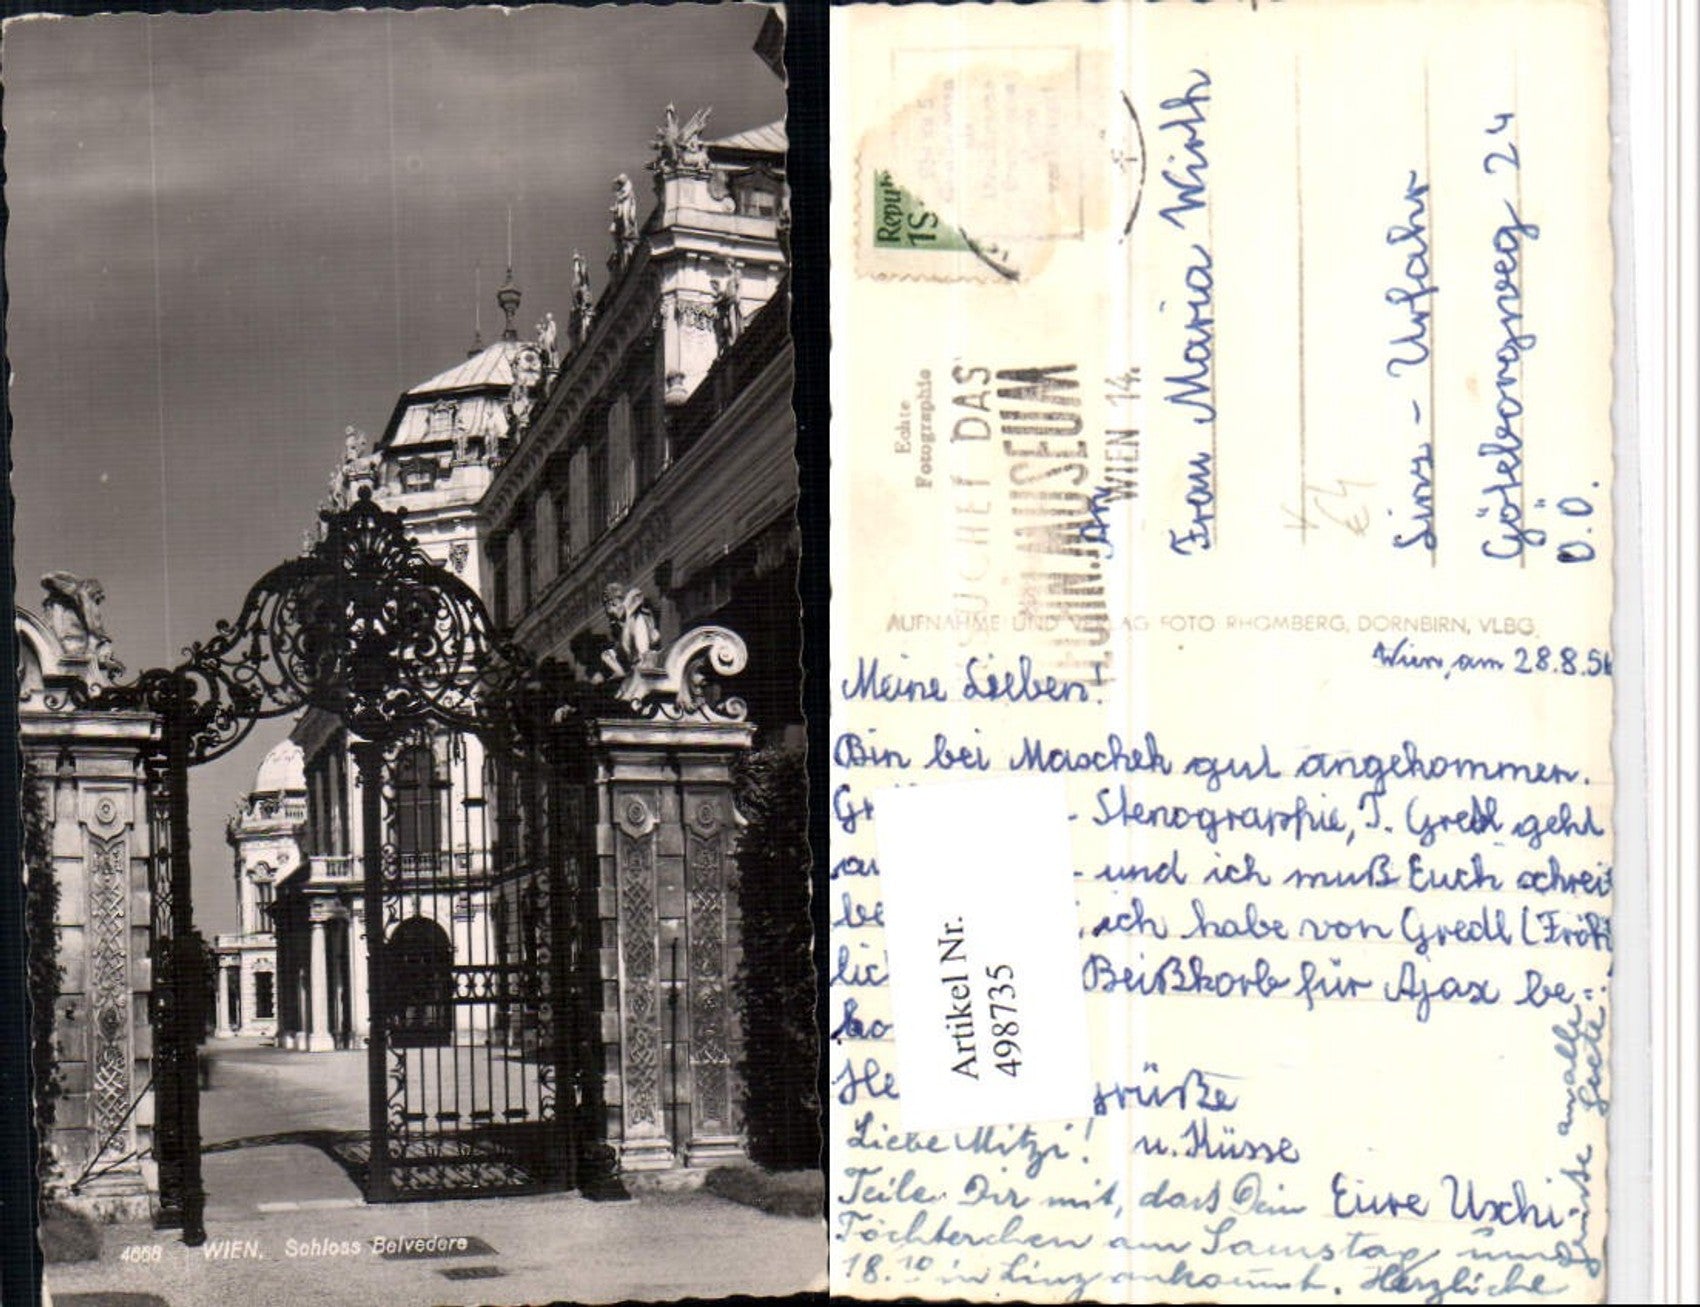 4668 WIEN, Schloss Belvedere
Repu
1S
Echte
Fotographie
SUCHET DAS
TECHN.MUSEUM
WIEN 14.
An
Frau Maria Wirth
Linz - Urfahr
Göteborgweg 24
O.Ö.
€4
AUFNAHME UND VERLAG FOTO RHOMBERG, DORNBIRN, VLBG.
Wien, am 28.8.56
Meine Lieben!
Bin bei Maschek gut angekommen.
Stenographie, T. Gredl geht
- und ich muß Euch schrei
be ich habe von Gredl (Fröh
lic Beißkorb für Ajax be=
ko
He grüße
u. Küsse
Eure Uschi
Artikel Nr.
498735
Liebe Mitzi!
Teile Dir mit, dass Dein
Töchterchen am Samstag um
18.10 in Linz ankommt. Herzliche
Grüsse an alle